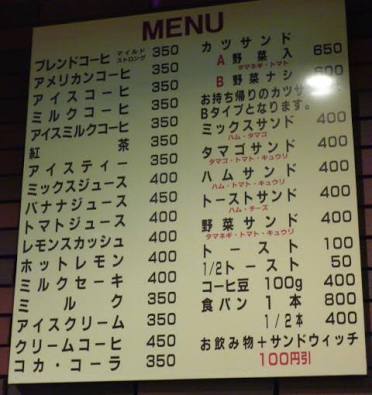 MENU
ブレンドコーヒ マイルド ストロング 350
アメリカンコーヒ 350
アイスコーヒ 350
ミルクコーヒ 350
アイスミルクコーヒ 350
紅茶 350
アイスティー 350
ミックスジュース 400
バナナジュース 450
トマトジュース 400
レモンスカッシュ 400
ホットレモン 400
ミルクセーキ 400
ミルク 350
アイスクリーム 350
クリームコーヒ 450
コカ・コーラ 350
カツサンド
A 野菜入 650
タマネギ・トマト
B 野菜ナシ 600
お持ち帰りのカツサ
Bタイプとなります。
ミックスサンド 400
ハム・タマゴ
タマゴサンド 400
タマゴ・トマト・キュウリ
ハムサンド 400
ハム・トマト・キュウリ
トーストサンド 400
ハム・チーズ
野菜サンド 400
タマネギ・トマト・キュウリ
トースト 100
1/2トースト 50
コーヒ豆 100g 400
食パン 1本 800
1/2本 400
お飲み物+サンドウィッチ
100円引